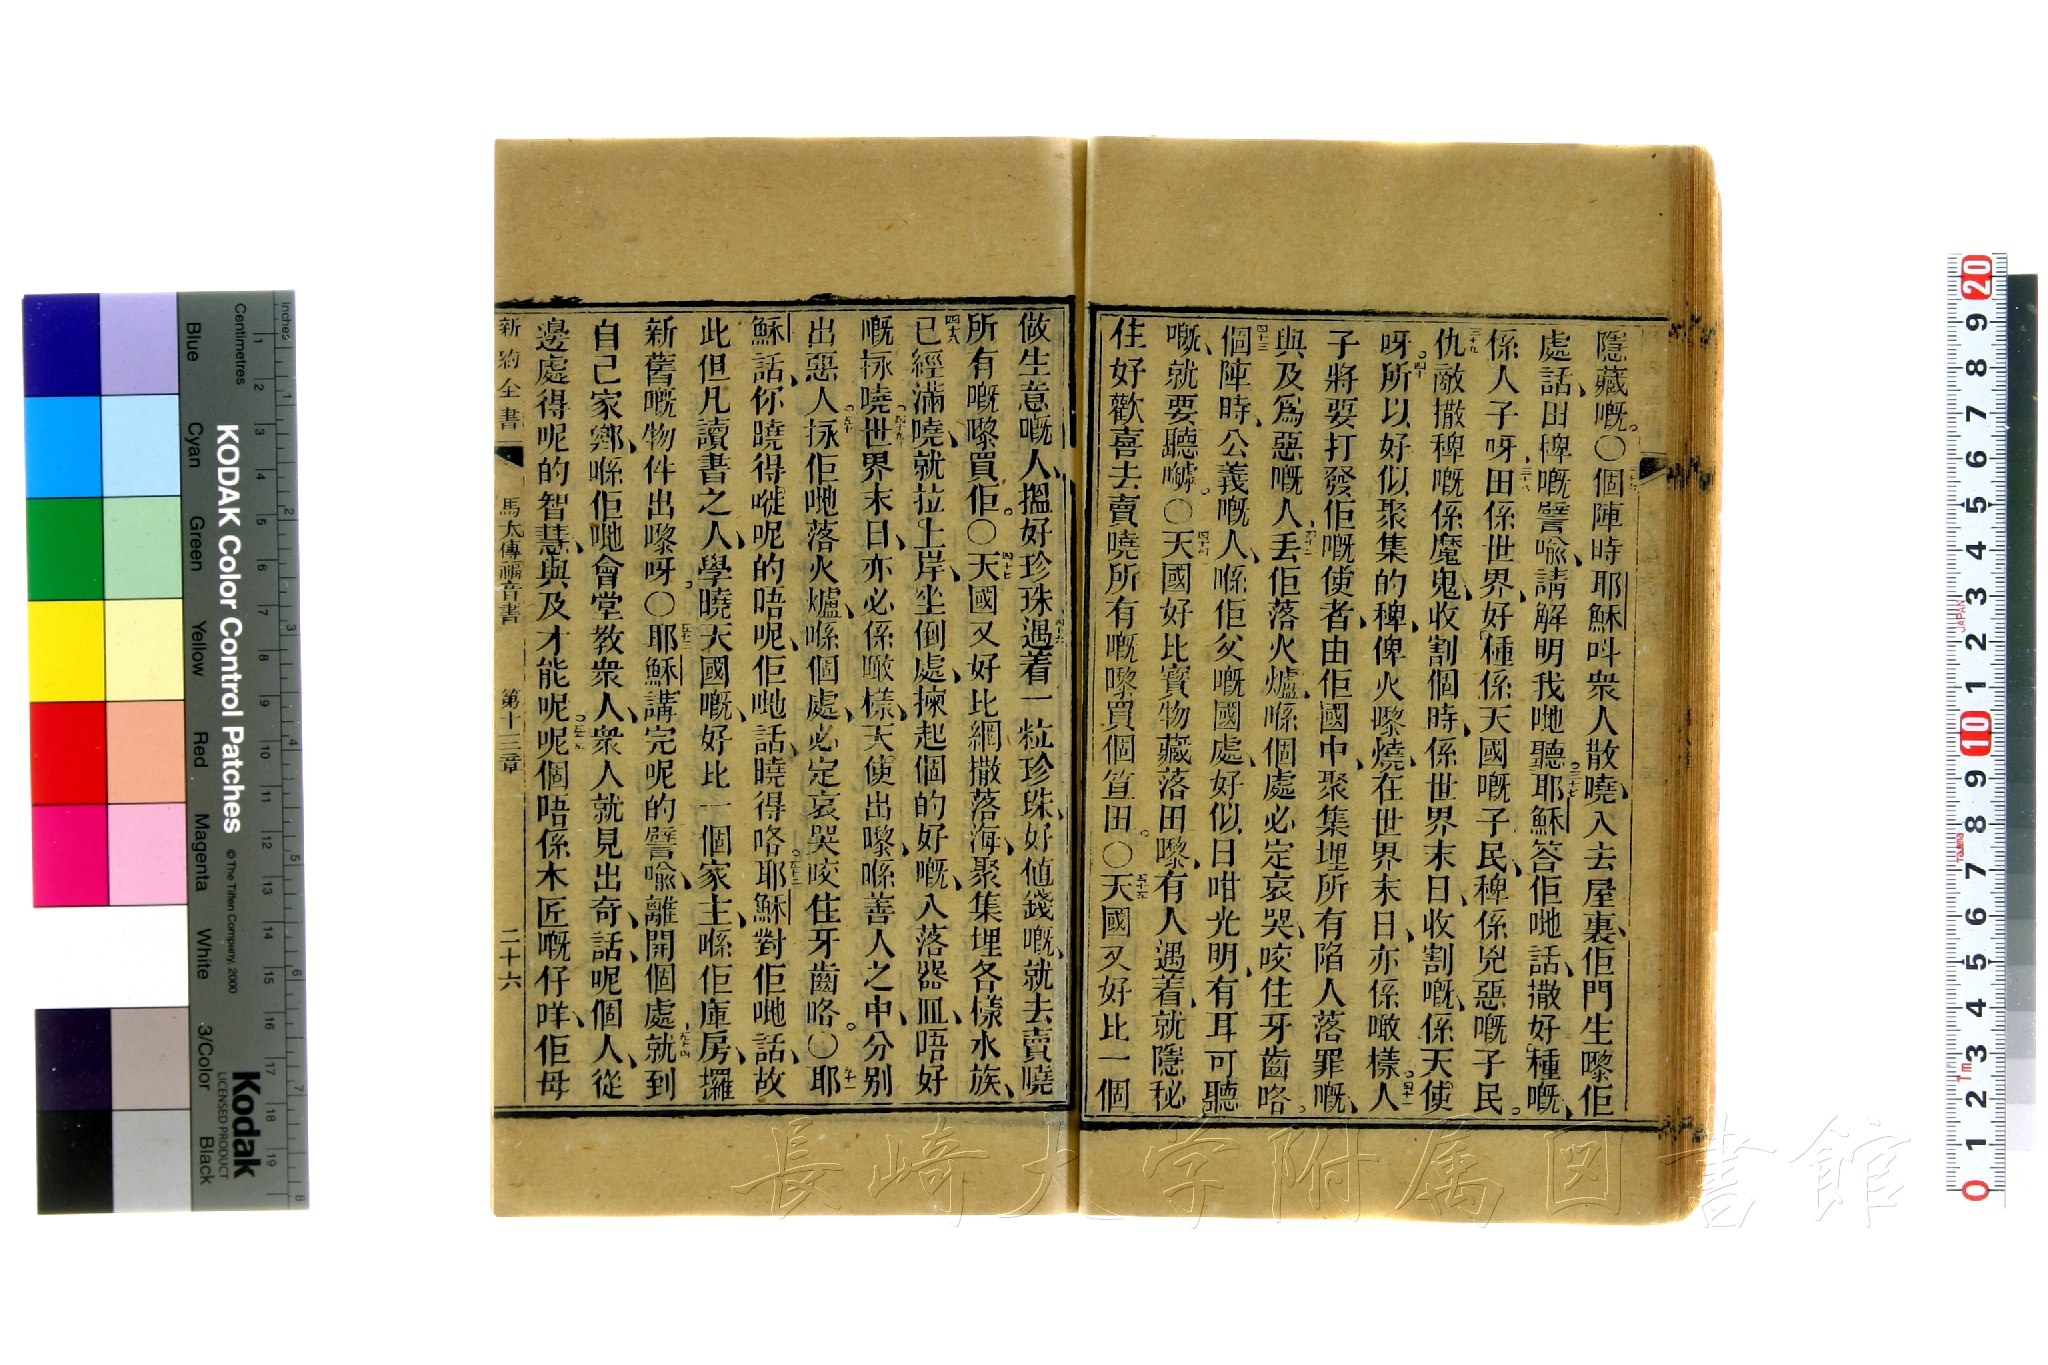 隱藏嘅。○個陣時耶穌呌衆人散曉、入去屋裏、佢門生嚟佢
處話、田稗嘅譬喩、請解明我哋聽、耶穌答佢哋話、撒好種嘅、
係人子呀、田係世界、好種係天國嘅子民、稗係兇惡嘅子民。
仇敵撒稗嘅係魔鬼、收割個時、係世界末日、收割嘅、係天使
呀。所以好似聚集的稗、俾火嚟燒、在世界末日、亦係噉樣、人
子將要打發佢嘅使者、由佢國中、聚集埋所有陷人落罪嘅、
與及爲惡嘅人、丢佢落火爐、喺個處必定哀哭、咬住牙齒咯。
個陣時、公義嘅人、喺佢父嘅國處、好似日咁光明、有耳可聽
嘅、就要聽嚹。○天國好比寳物藏落田嚟、有人遇着、就隱秘
住好歡喜去賣曉所有嘅嚟買個笪田。○天國又好比一個
做生意嘅人、搵好珍珠、遇着一粒珍珠、好値錢嘅、就去賣曉
所有嘅嚟買佢。○天國又好比網撒落海、聚集埋各樣水族、
已經滿曉、就拉上岸、坐倒處、揀起個的好嘅、入落器皿、唔好
嘅、捄曉、世界末日、亦必係噉樣、天使出嚟、喺善人之中、分别
出惡人、捄佢哋落火爐、喺個處、必定哀哭咬住牙齒咯。○耶
穌話、你曉得嗮呢的唔呢、佢哋話、曉得咯、耶穌對佢哋話、故
此但凡讀書之人、學曉天國嘅、好比一個家主、喺佢庫房、攞
新舊嘅物件出嚟呀。○耶穌講完呢的譬喩、離開個處、就到
自己家鄕、喺佢哋會堂教衆人、衆人就見出奇、話、呢個人、從
邊處得呢的智慧、與及才能呢、呢個唔係木匠嘅仔咩、佢母
新約全書 馬太傳福音書 第十三章 二十六
KODAK Color Control Patches
© The Tiffen Company, 2000
Kodak
LICENSED PRODUCT
Inches
Centimetres
Blue
Cyan
Green
Yellow
Red
Magenta
White
3/Color
Black
JAPAN
長崎大学附属図書館